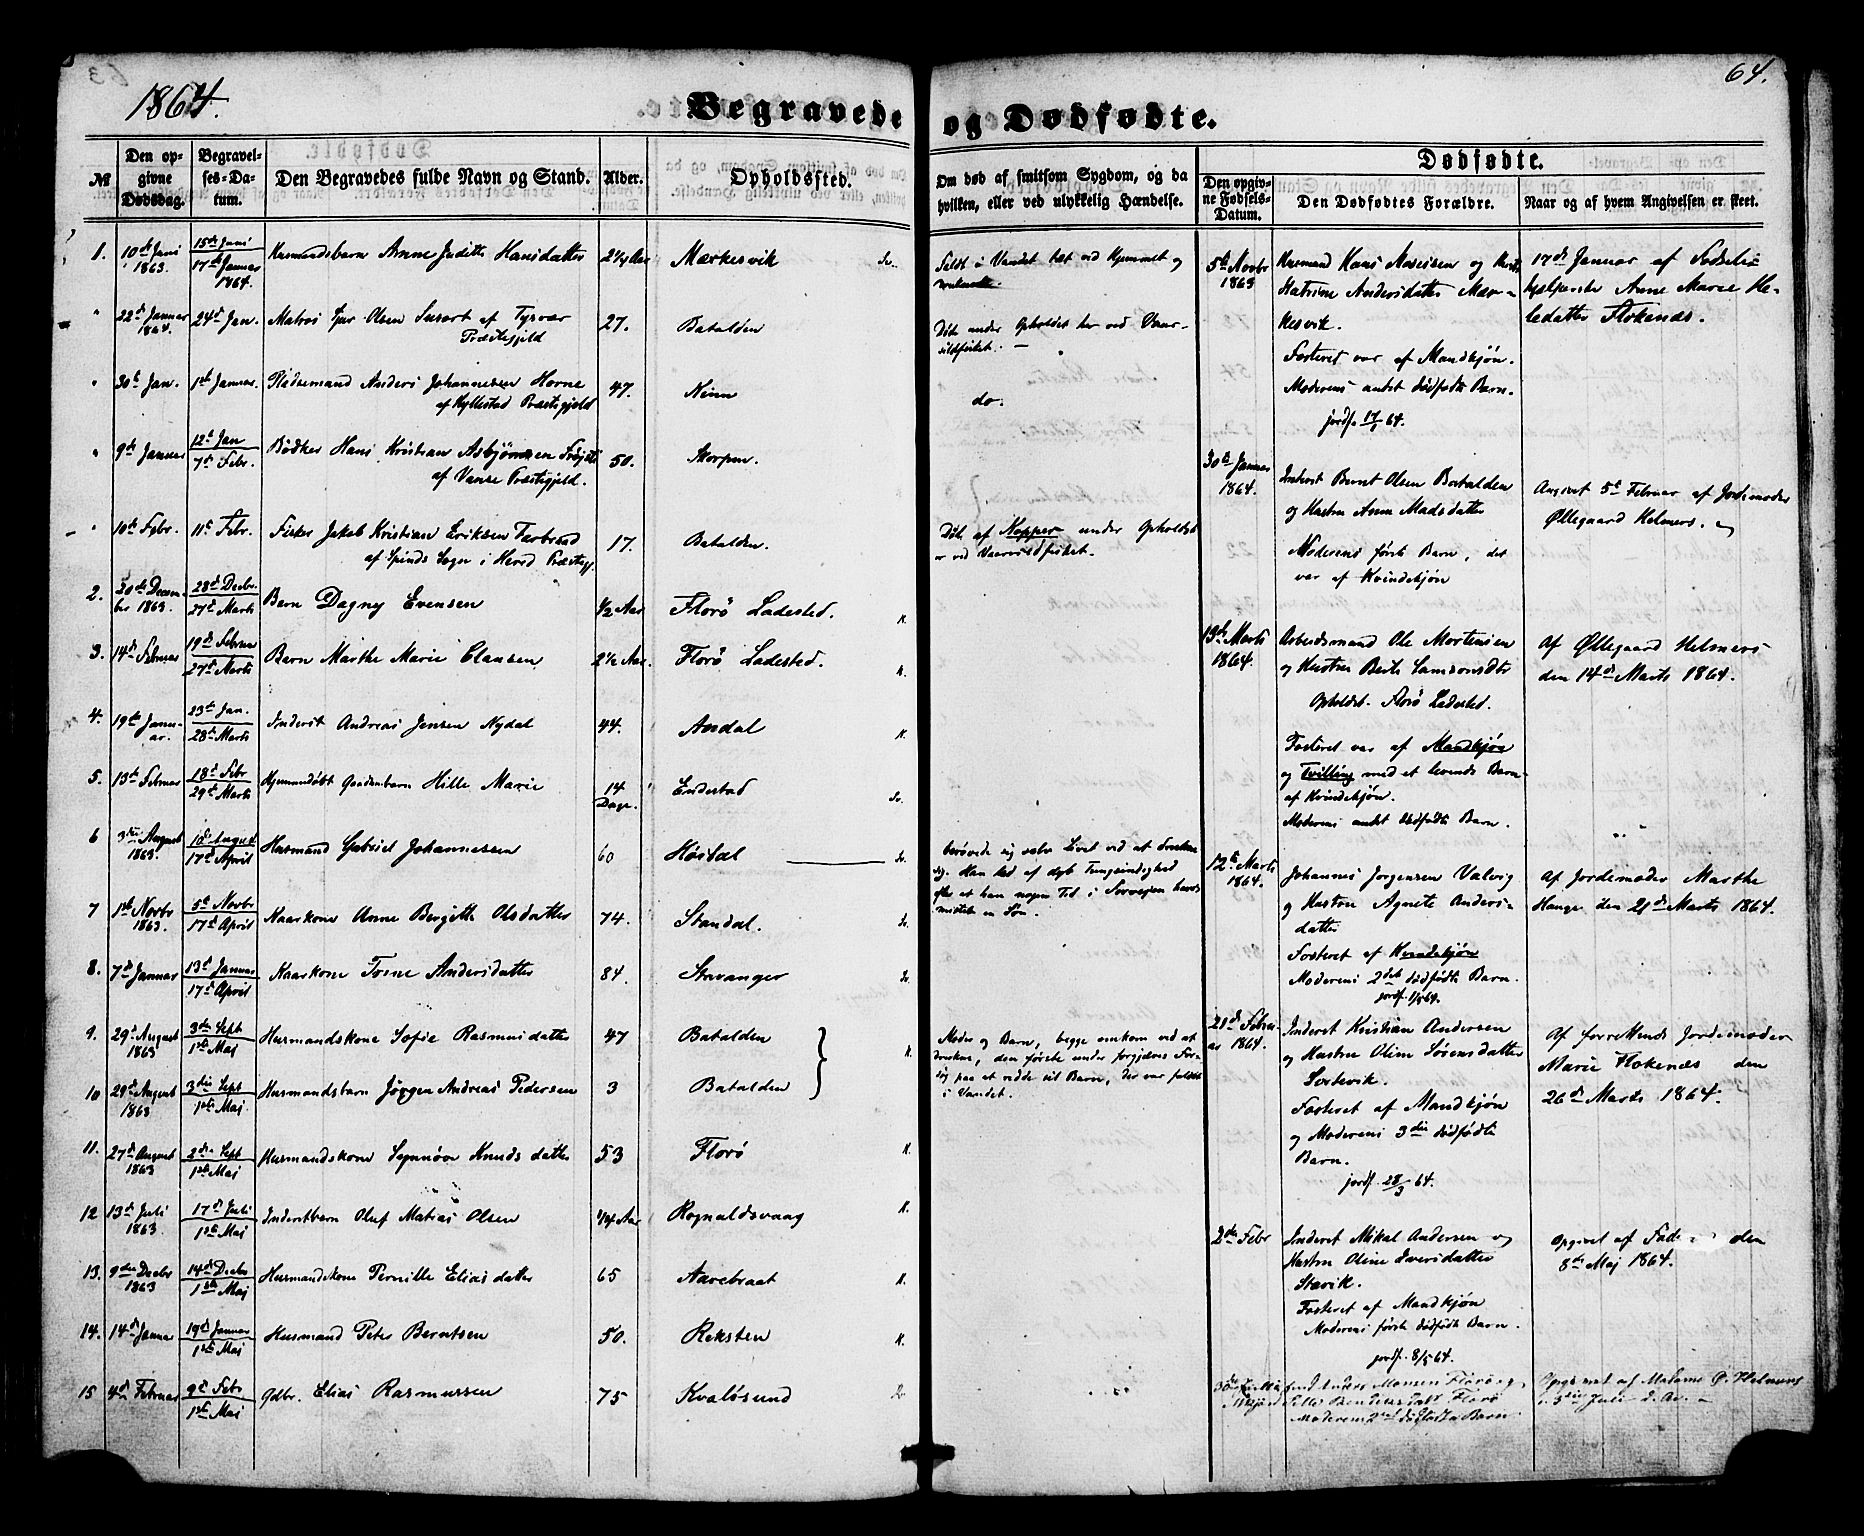 1864.
64.
Begravede og Dødfødte.
№
Den opgivne Dødsdag.
Begravelses-Datum.
Den Begravedes fulde Navn og Stand.
Alder.
Opholdssted.
Om død af smitsom Sygdom, og da hvilken, eller ved ulykkelig Hændelse.
Dødfødte.
Den opgivne Fødsels-Datum.
Den Dødfødtes Forældre.
Naar og af hvem Angivelsen er skeet.
1. 10de Juni 1863. 15de Juni 17de Januar 1864. Husmandsbarn Anne Judithe Hansdatter 2 1/4 Aar Markesvik
Faldt i Vandet tæt ved Hjemmet og
" 22de Januar 1864. 24de Jan. Matros Olsen af Tysvær
Præstegjeld 27. Batalden
Død under Opholdet her ved Vaar-
sildfisket.
" 30te Jan. 1ste Januar. Pladsemand Anders Johannesen Horne
af Hyllestad Præstegjeld 47. Kinn
do.
" 9de Januar 12te Jan 7de Febr. Bødker Hans Kristian Asbjørnsen
af Vanse Præstegjeld. 50. Skorpen.
" 10de Febr. 11te Febr. Fisker Jakob Kristian Eriksen
af Spinds Sogn i Herred Præstegj. 17. Batalden.
Død af Kopper under Opholdet
ved Vaarsildfisket.
2. 20de Decem-
ber 1863. 28de Decbr. 27de Marts Barn Dagny Evensen 1/2 Aar Florø Ladested. K.
3. 14de Februar 19de Februar 27de Marts Barn Marthe Marie Clausen 2 1/2 Aar. Florø Ladested. K.
4. 19de Janu-
ar. 23de Jan. 28de Marts Inderst Andreas Jensen Nydal 44. Aasdal K.
5. 13de Februar 18de Febr 29de Marts Hjemmedøbt Hille Marie 14 Dage. Endestad
6 3die August 1863. 10de August 17de April Husmand Gabriel Johannessen 60 Høidal
berøvede sig selv Livet ved at
sig. Han led af dyb Tungsindighed
efter at han nogen Tid i havde
mistet en Søn.
7 1ste Novbr 1863. 5te Novbr 17de April Kaarkone Anne Bergitte Olsdatter 74. Standal.
8. 7de Januar 13de Januar 17de April Kaarkone Andersdatter 84. Stavanger
9. 29de August 1863 3die Sept 1ste Maj Husmandskone Sofie Rasmusdatter 47 Batalden K.
10 29de August 1863 3die Sept 1ste Maj Husmandsbarn Jørgen Andreas Pedersen 3 Batalden
Moder og Barn, begge omkom ved at
drukne, den første under forgjæves For-
søg paa at redde sit Barn, der var faldet
i Vandet.
11. 27de August 1863 2den Sept 1ste Maj Husmandskone Synnøve Knudsdatter 53 Florø K.
12 13de Juli 1863. 17de Juli 1ste Maj Inderstbarn Oluf Matias Olsen 1/4 Aar Rognaldsvaag K.
13. 9de Decbr 1863 14de Decbr 1ste Maj Husmandskone Pernille Eliasdatter 65 Aarebraat K.
14. 14de Januar 19de Januar 1ste Maj Husmand Peter Berntsen 50. Reksten K.
15 4de Februar 9de Febr 1ste Maj Gdbr. Elias Rasmussen 75 Kvaløsund
5te Novbr 1863 Husmand Hans Mosessen og Hustru
Katrine Andersdatter Mar-
kesvik.
Fosteret var af Mandkjøn.
Moderens andet dødfødte Barn.
jordf. 17/1 64.
17de Januar af Fødsels-
hjælperske Anne Marie He-
ledatter Flokenæs.
30te Januar 1864. Inderst Bernt Olsen Batalden
og Hustru Anne Madsdatter
Moderens første Barn, det
var af Kvindekjøn
Angivet 5te Februar af Jordemoder
Øllegaard Helmers.
13de Marts 1864. Arbeidsmand Ole Mortensen
og Hustru Berthe Samsonsdtr
Opholdst. Florø Ladested.
Fosteret var af Mandkjøn
og Tvilling med et levende Barn
af Kvindekjøn.
Moderens andet dødfødte Barn.
Af Øllegaard Helmers
den 14de Marts 1864.
12te Marts 1864. Johannes Jørgensen Valvig
og Hustru Agnete Anders-
datter
Fosteret af Kvindekjøn
Moderens 2det dødfødte Barn.
jordf. 1/5 64.
Af Jordemoder Marthe
Hauge den 21de Marts 1864.
21de Febru-
ar 1864. Inderst Kristian Andersen
og Hustru Oline Sørensdatter
Fosteret af Mandkjøn
og Moderens 3die dødfødte
Barn.
jordf. 28/3 64.
Af forrettende Jordemoder
Marie Flokenæs den
26de Marts 1864.
2den Febr Inderst Mikal Andersen og
Hustru Oline Iversdatter
Stavik.
Fosteret af Mandkjøn
Moderens første dødfødte Barn.
jordf. 8/5 64.
Opgivet af Faderen den
8de Maj 1864.
Anders Monsen Florø og
Florø
Moderens 2det dødfødte Barn
Opgivet af Madame Ø. Helmers
3die Juli